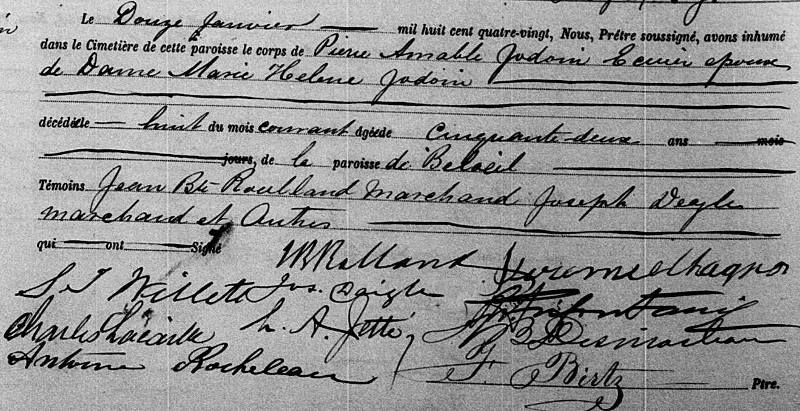 Le Douze Janvier mil huit cent quatre-vingt, Nous, Prêtre soussigné, avons inhumé
dans le Cimetière de cette paroisse le corps de Pierre Amable Jodoin Ecuier époux
de Dame Marie Helene Jodoin
décédé le huit du mois courant âgé de Cinquante deux ans mois
jours, de la paroisse de Beloeil
Témoins Jean Bte Roulland Marchand Joseph Degle
marchand et Autres
qui ont Signé
S. T Willett Jos. Daigle
Charles L. A. Jetté Desmarteau
Antoine Rocheleau F. Birtz Ptre.